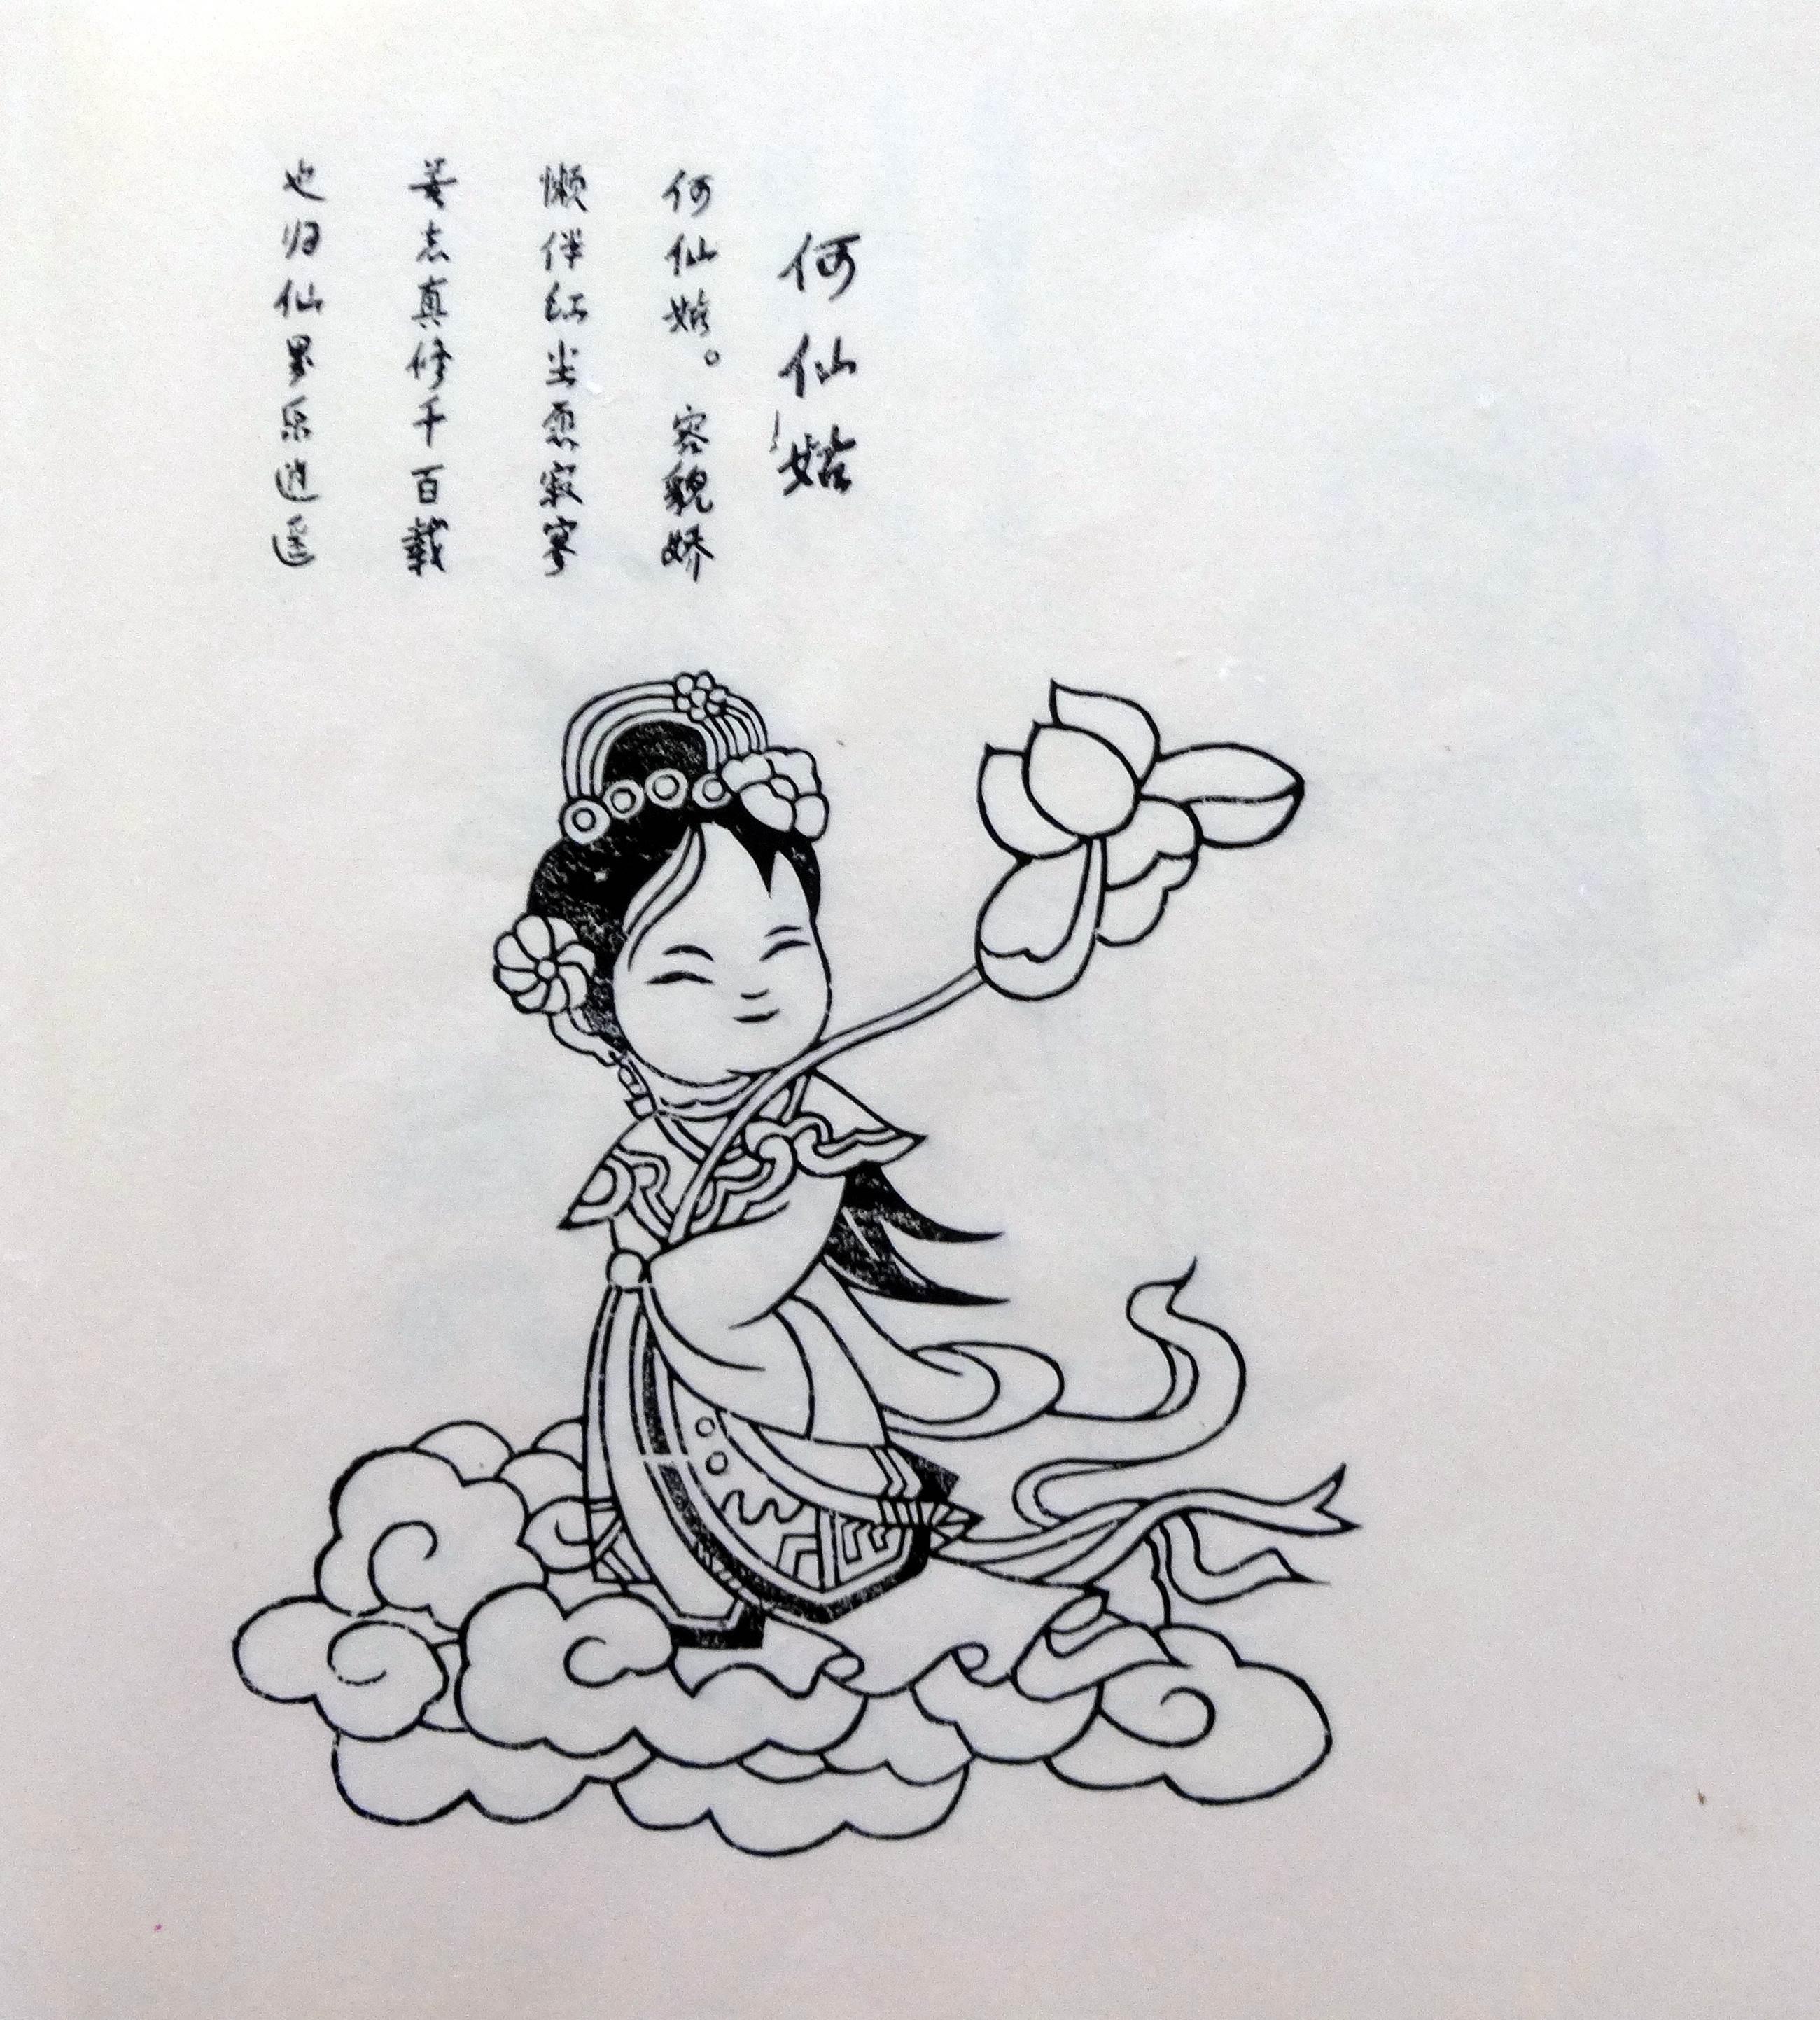 何仙姑
何仙姑。容貌娇
懒伴红尘愿寂寥
苦志真修千百载
也归仙界乐逍遥